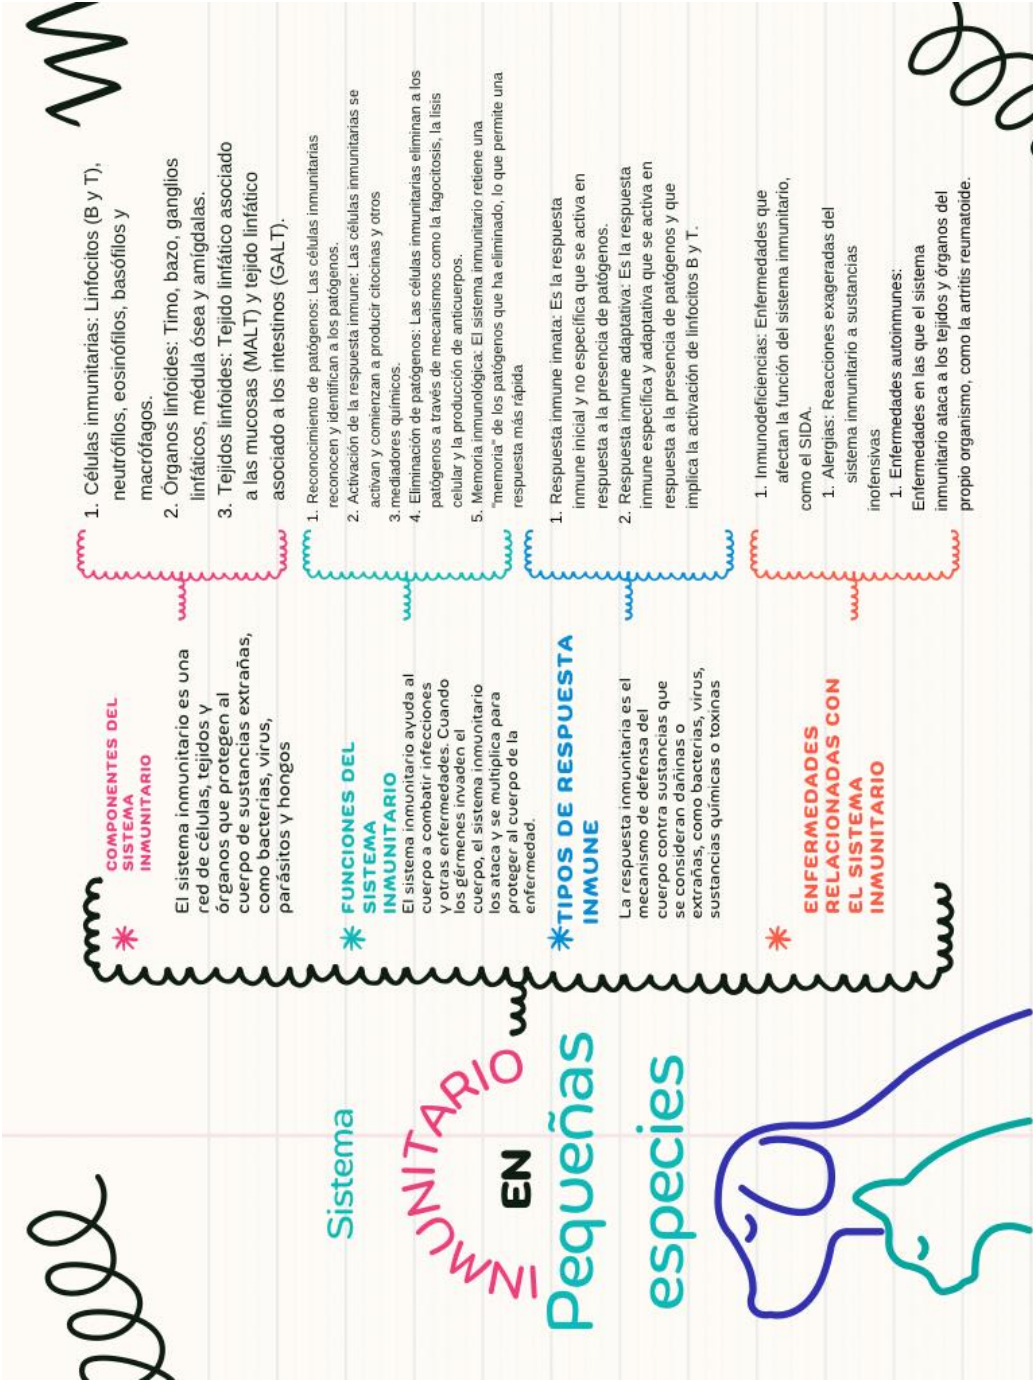 Sistema
INMUNITARIO
EN
Pequeñas
especies
COMPONENTES DEL
SISTEMA
INMUNITARIO
El sistema inmunitario es una
red de células, tejidos y
órganos que protegen al
cuerpo de sustancias extrañas,
como bacterias, virus,
parásitos y hongos
1. Células inmunitarias: Linfocitos (B y T),
neutrófilos, eosinófilos, basófilos y
macrófagos.
2. Órganos linfoides: Timo, bazo, ganglios
linfáticos, médula ósea y amígdalas.
3. Tejidos linfoides: Tejido linfático asociado
a las mucosas (MALT) y tejido linfático
asociado a los intestinos (GALT).
FUNCIONES DEL
SISTEMA
INMUNITARIO
El sistema inmunitario ayuda al
cuerpo a combatir infecciones
y otras enfermedades. Cuando
los gérmenes invaden el
cuerpo, el sistema inmunitario
los ataca y se multiplica para
proteger al cuerpo de la
enfermedad.
1. Reconocimiento de patógenos: Las células inmunitarias
reconocen y identifican a los patógenos.
2. Activación de la respuesta inmune: Las células inmunitarias se
activan y comienzan a producir citocinas y otros
3. mediadores químicos.
4. Eliminación de patógenos: Las células inmunitarias eliminan a los
patógenos a través de mecanismos como la fagocitosis, la lisis
celular y la producción de anticuerpos.
5. Memoria inmunológica: El sistema inmunitario retiene una
"memoria" de los patógenos que ha eliminado, lo que permite una
respuesta más rápida
TIPOS DE RESPUESTA
INMUNE
La respuesta inmunitaria es el
mecanismo de defensa del
cuerpo contra sustancias que
se consideran dañinas o
extrañas, como bacterias, virus,
sustancias químicas o toxinas
1. Respuesta inmune innata: Es la respuesta
inmune inicial y no específica que se activa en
respuesta a la presencia de patógenos.
2. Respuesta inmune adaptativa: Es la respuesta
inmune específica y adaptativa que se activa en
respuesta a la presencia de patógenos y que
implica la activación de linfocitos B y T.
ENFERMEDADES
RELACIONADAS CON
EL SISTEMA
INMUNITARIO
1. Inmunodeficiencias: Enfermedades que
afectan la función del sistema inmunitario,
como el SIDA.
1. Alergias: Reacciones exageradas del
sistema inmunitario a sustancias
inofensivas
1. Enfermedades autoinmunes:
Enfermedades en las que el sistema
inmunitario ataca a los tejidos y órganos del
propio organismo, como la artritis reumatoide.